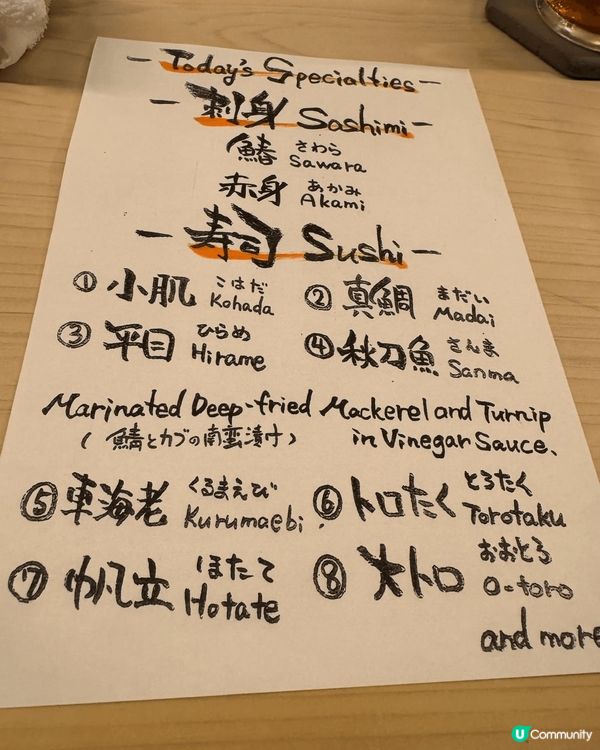 - Today's Specialties -
- 刺身 Sashimi -
鰆 さわら Sawara
赤身 あかみ Akami
- 寿司 Sushi -
① 小肌 こはだ Kohada
② 真鯛 まだい Madai
③ 平目 ひらめ Hirame
④ 秋刀魚 さんま Sanma
Marinated Deep-fried Mackerel and Turnip
(鯖とカブの南蛮漬け) in Vinegar Sauce.
⑤ 車海老 くるまえび Kurumaebi
⑥ トロたく とろたく Torotaku
⑦ 帆立 ほたて Hotate
⑧ 大トロ おおとろ O-toro
and more
U Community